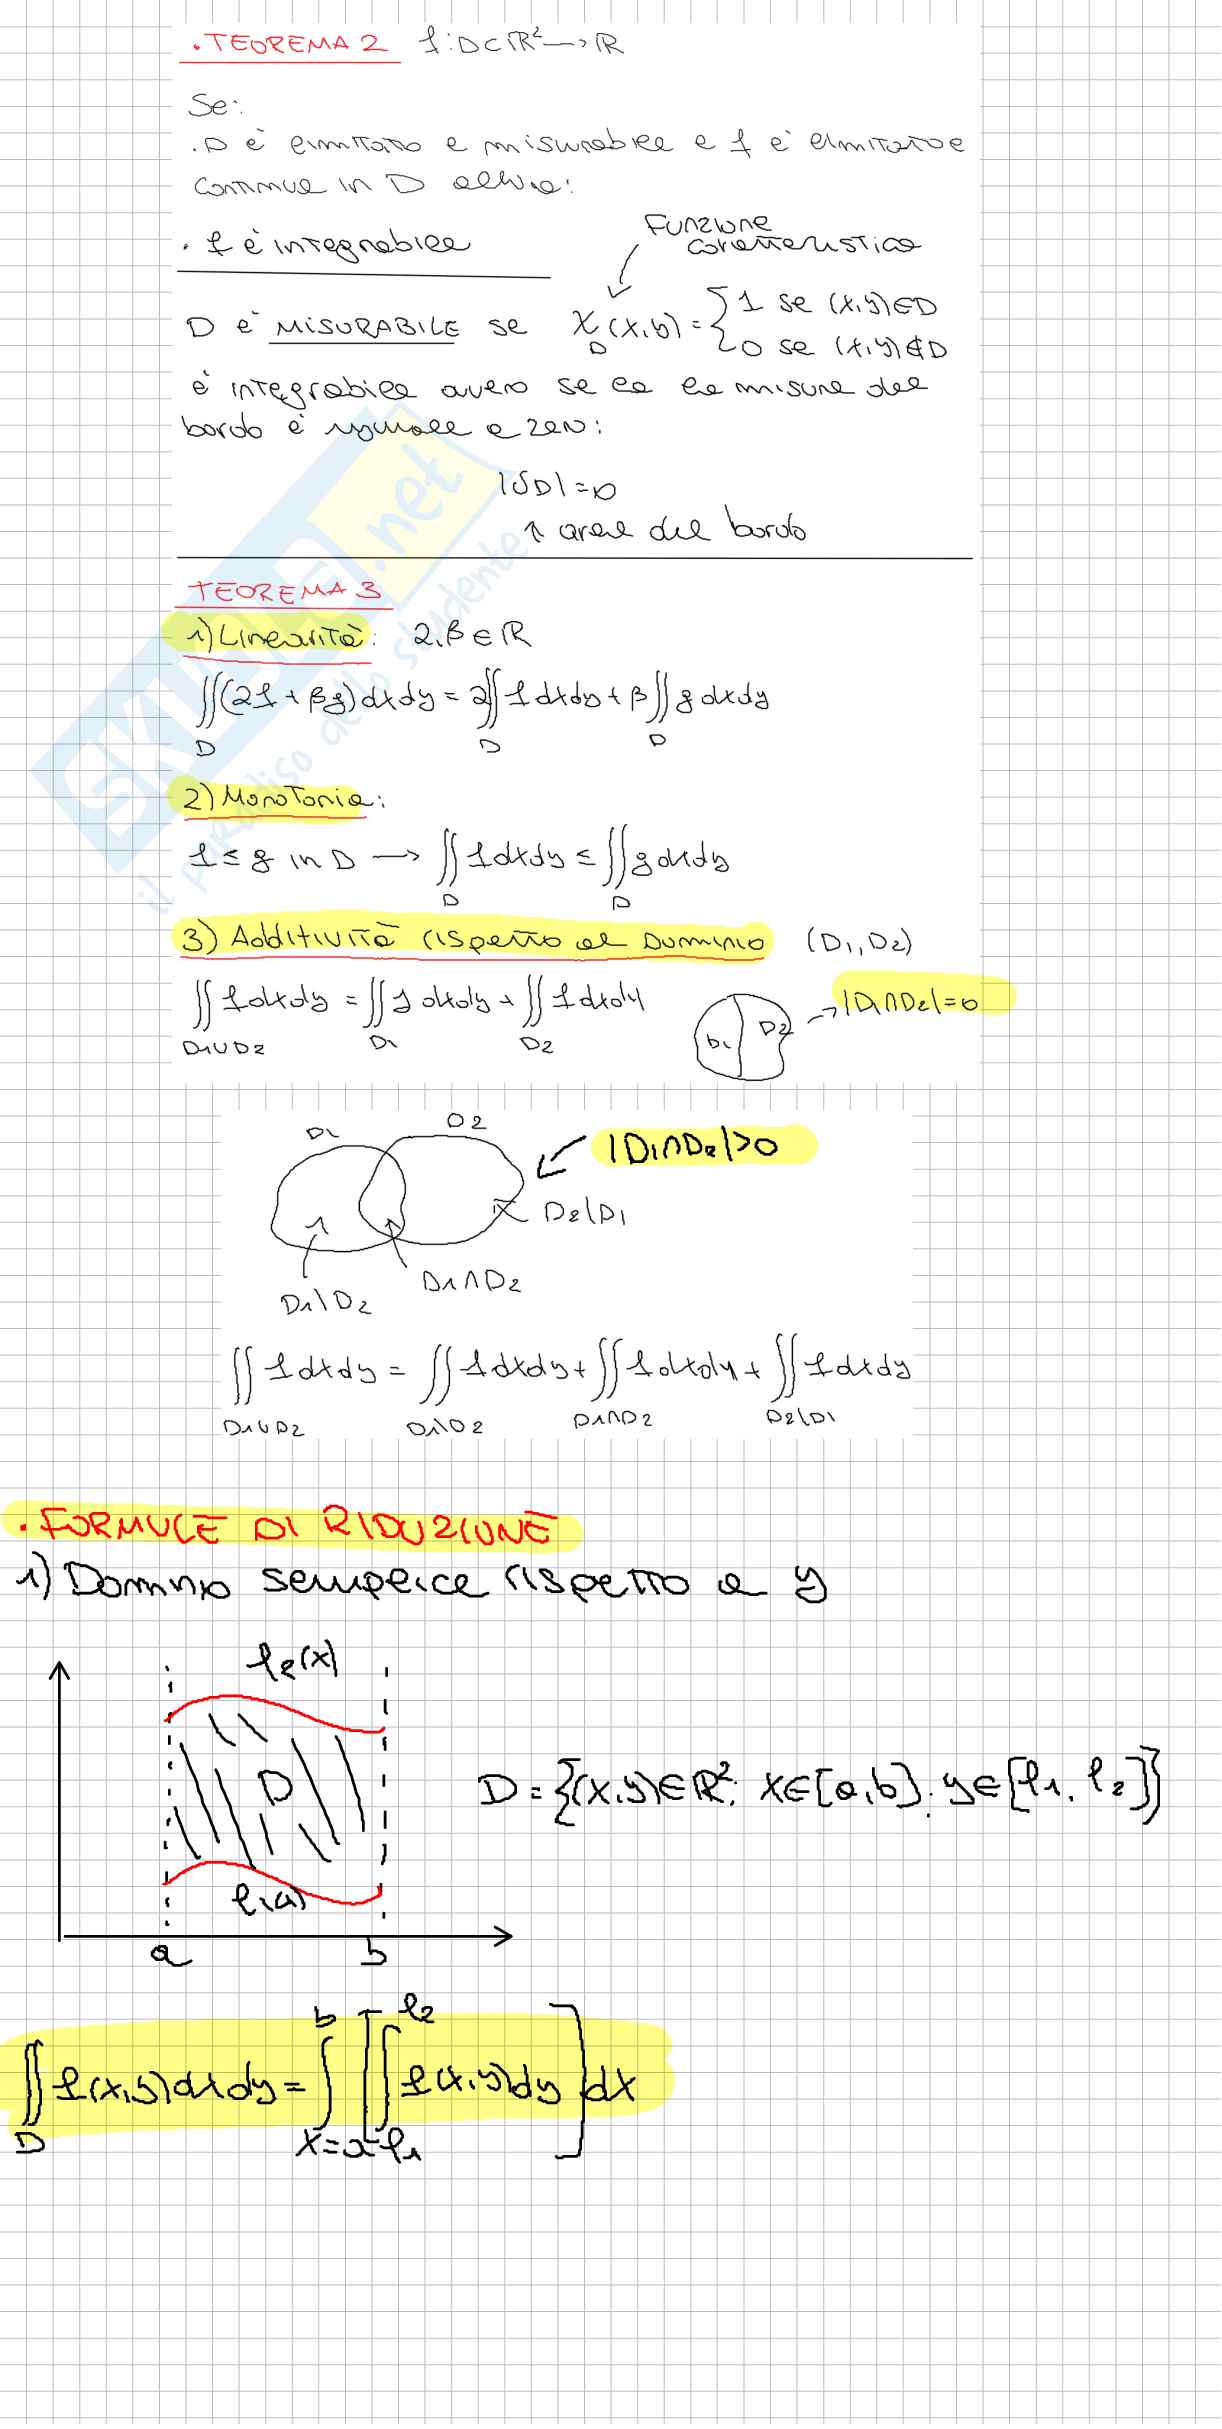 . TEOREMA 2 f: D ⊂ ℝ² → ℝ
Se:
. D è limitato e misurabile e f è limitata e
continua in D allora:
. f è integrabile
Funzione
caratteristica
D è MISURABILE se χ_D (x,y) = { 1 se (x,y) ∈ D
0 se (x,y) ∉ D
è integrabile ovvero se la misura del
bordo è uguale a zero:
|δD| = 0
↑ area del bordo
TEOREMA 3
1) Linearità: α, β ∈ ℝ
∬_D (αf + βg) dxdy = α ∬_D f dxdy + β ∬_D g dxdy
2) Monotonia:
f ≤ g in D → ∬_D f dxdy ≤ ∬_D g dxdy
3) Additività rispetto al Dominio (D1, D2)
∬_{D1∪D2} f dxdy = ∬_{D1} f dxdy + ∬_{D2} f dxdy
D1 D2 → |D1∩D2| = 0
D1 D2 |D1∩D2| > 0
D2\D1
D1∩D2
D1\D2
∬_{D1∪D2} f dxdy = ∬_{D1\D2} f dxdy + ∬_{D1∩D2} f dxdy + ∬_{D2\D1} f dxdy
. FORMULE DI RIDUZIONE
1) Dominio semplice rispetto a y
f2(x)
D
D = {(x,y) ∈ ℝ²: x ∈ [a,b]; y ∈ [f1, f2]}
a b
∬_D f(x,y) dxdy = ∫_{x=a}^{b} [ ∫_{f1}^{f2} f(x,y) dy ] dx
SKUOLA.net
il paradiso dello studente